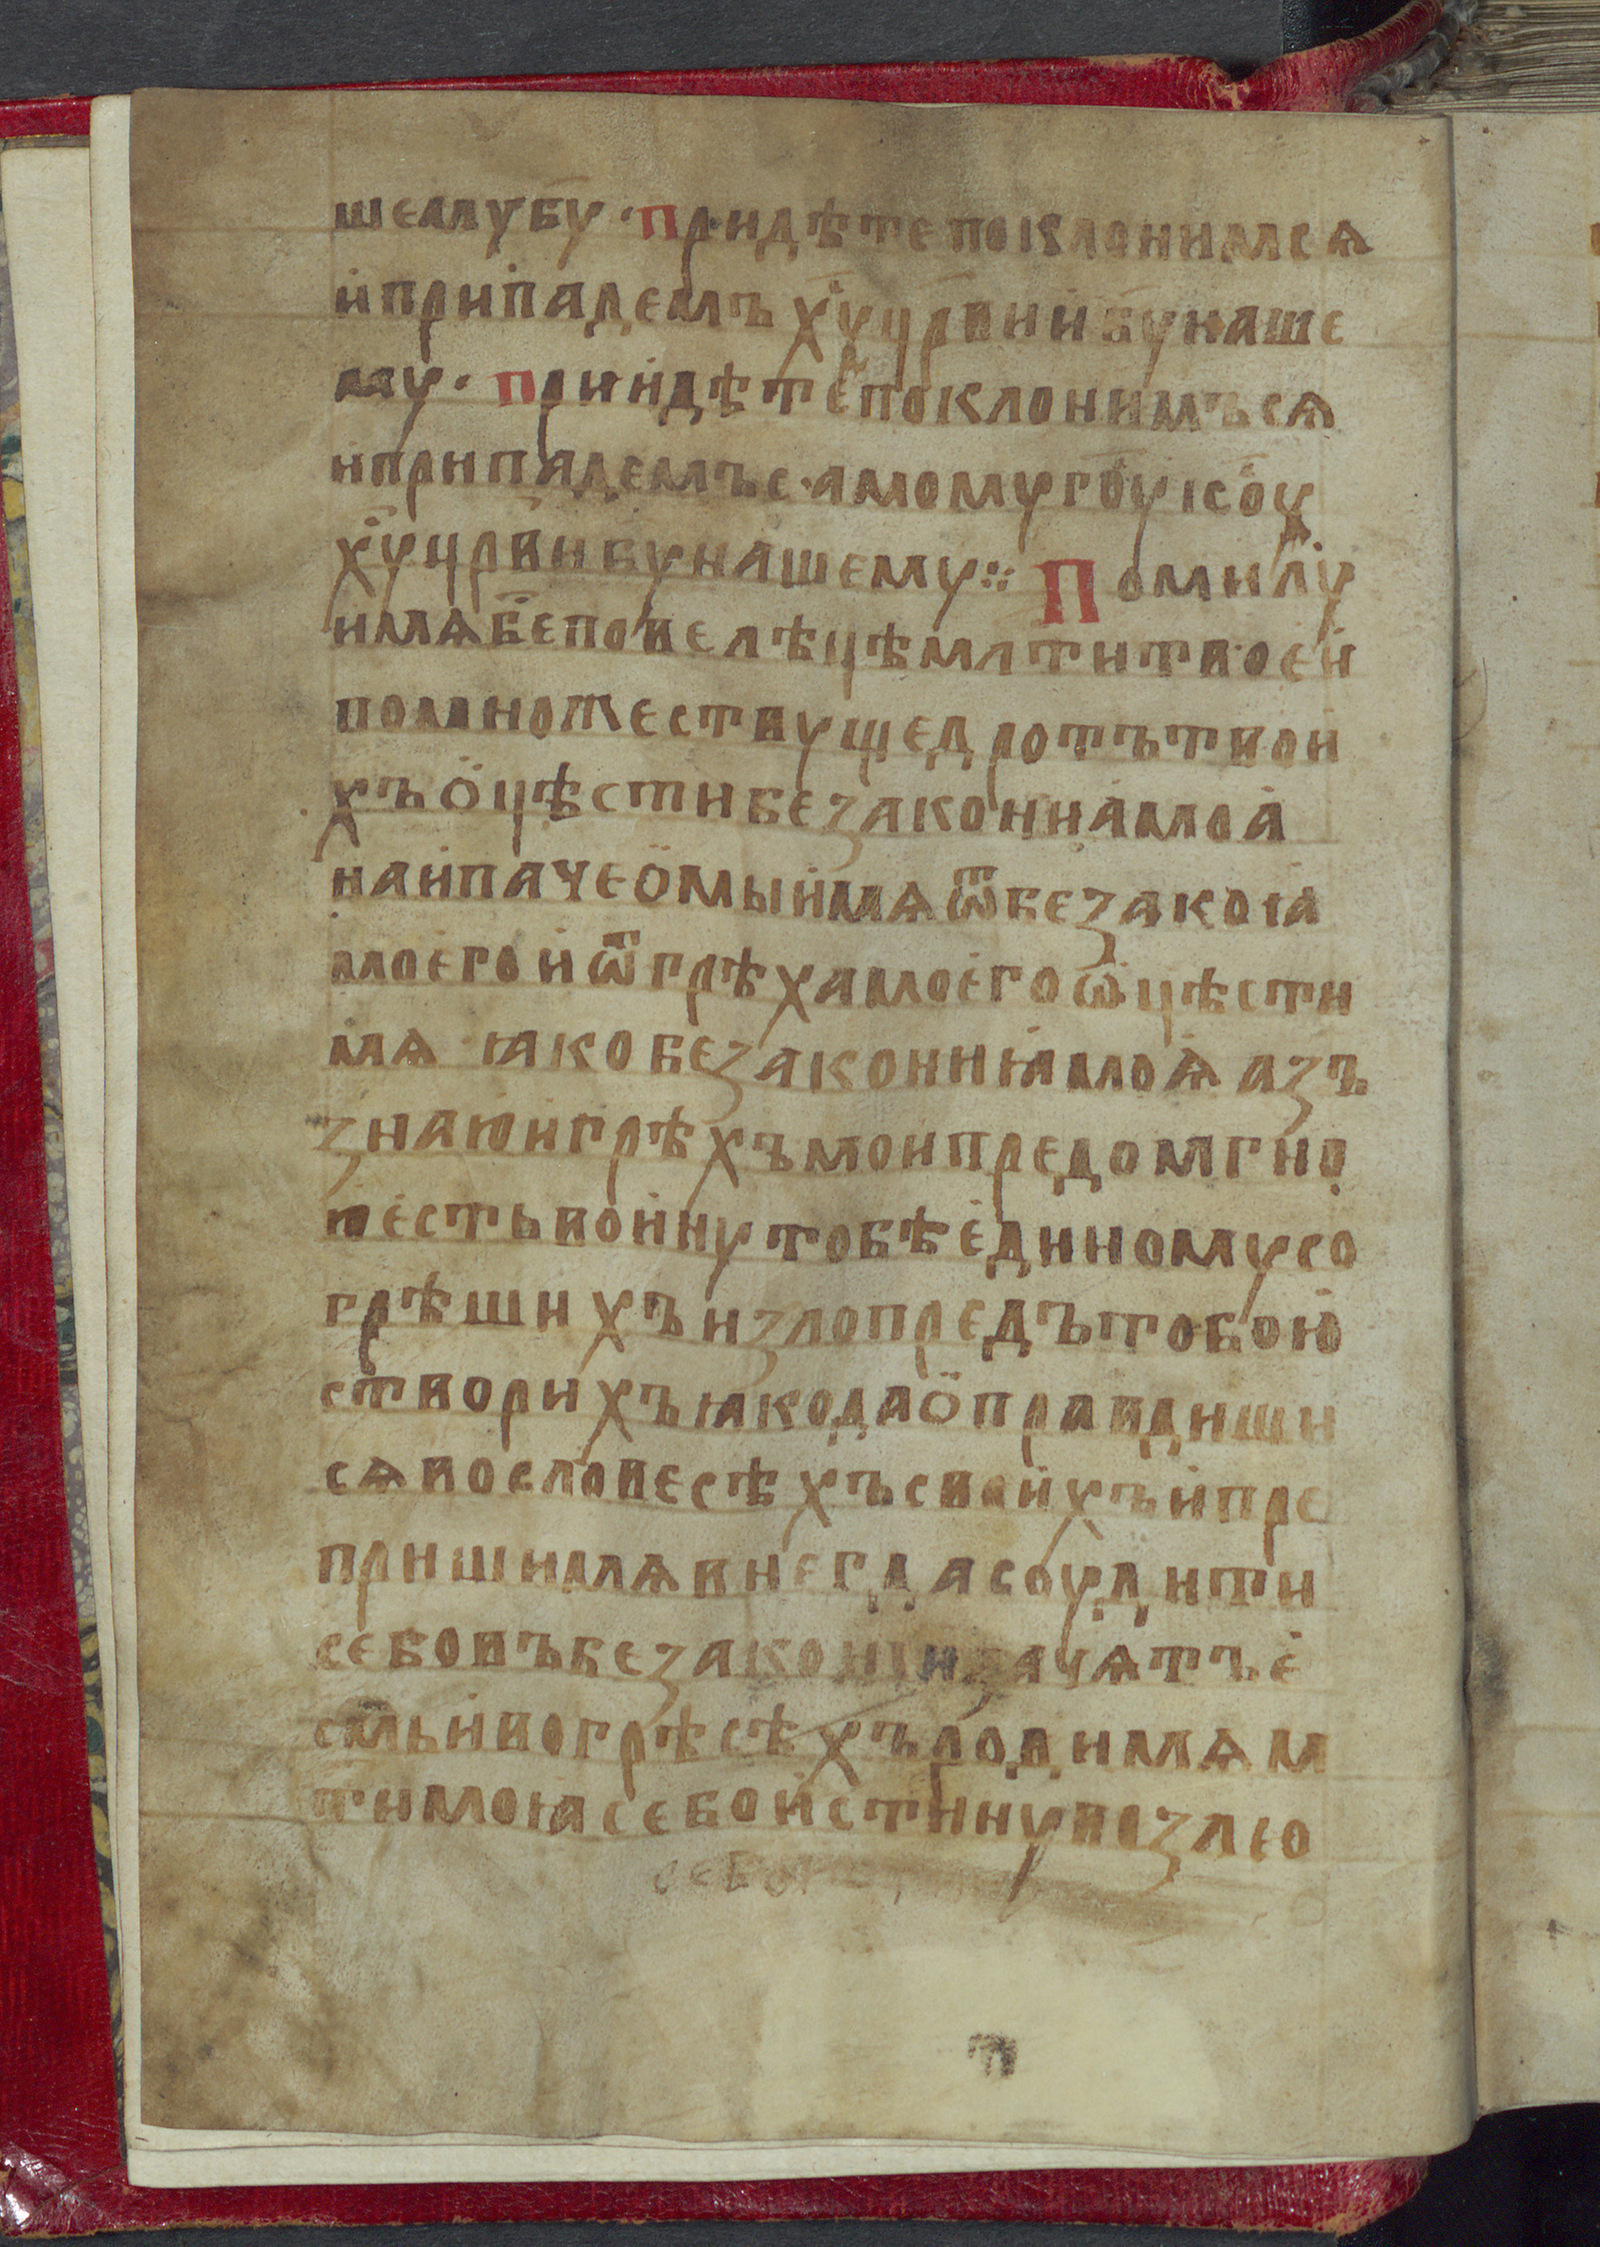 шемубу · придѣте поклонимся
и припадемъ ху҃ цр҃ви и бу҃ наше
му · приидѣте поклонимъся
и припадемъ с·амому го҃у ісо҃у
ху҃ цр҃ви бу҃ нашему ⁘ Помилу
имѧ бе҃ повелѣцѣ млт҃и тв·оеи
помножеству щедротъ твои
хъ оцѣсти безакониа моа
наипаче омыи мѧ ѿ безакоꙗ
моего и ѿ грѣха моего ѡцѣсти
мѧ · ꙗко безакониꙗ моѧ азъ
знаю и грѣхъ мои предомгно
и есть воину тобѣ единому со
грѣшихъ и зло предъ тобою
створихъ ꙗко да оправдиши
сѧ во словесѣхъ своихъ и пре
приши мѧ внегда соудити
се бо въ безаконии зачѧтъ е
смь и во грѣсѣхъ роди мѧ м
т҃и моꙗ се бо истину возлю
себо